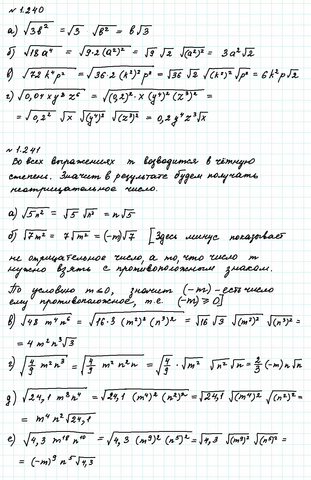 № 1.240
а) √3b² = √3 √b² = b√3
б) √18a⁴ = √9·2(a²)² = √9 √2 √(a²)² = 3a²√2
в) √72k⁴p² = √36·2(k²)²p² = √36 √2 √(k²)² √p² = 6k²p√2
г) √0,04xy⁸z⁶ = √(0,2)²·x(y⁴)²(z³)² =
= √0,2² √x √(y⁴)² √(z³)² = 0,2y⁴z³√x
№ 1.241
Во всех выражениях m возводится в чётную
степень. Значит в результате будем получать
неотрицательное число.
а) √5n² = √5 √n² = n√5
б) √7m² = √7 √m² = (-m)√7 [Здесь минус показывает
не отрицательное число, а то, что число m
нужно взять с противоположным знаком.
По условию m≤0, значит (-m) - есть число
ему противоположное, т.е. (-m)≥0]
в) √48m⁴n⁶ = √16·3(m²)²(n³)² = √16 √3 √(m²)² √(n³)² =
= 4m²n³√3
г) √4/9 m²n³ = √4/9 m²n²n = √4/9 · √m² √n² √n = 2/3 (-m)n√n
д) √24,1 m⁸n⁴ = √24,1(m⁴)²(n²)² = √24,1 √(m⁴)² √(n²)² =
= m⁴n²√24,1
е) √4,3 m¹⁸n¹⁰ = √4,3(m⁹)²(n⁵)² = √4,3 √(m⁹)² √(n⁵)² =
= (-m)⁹n⁵√4,3